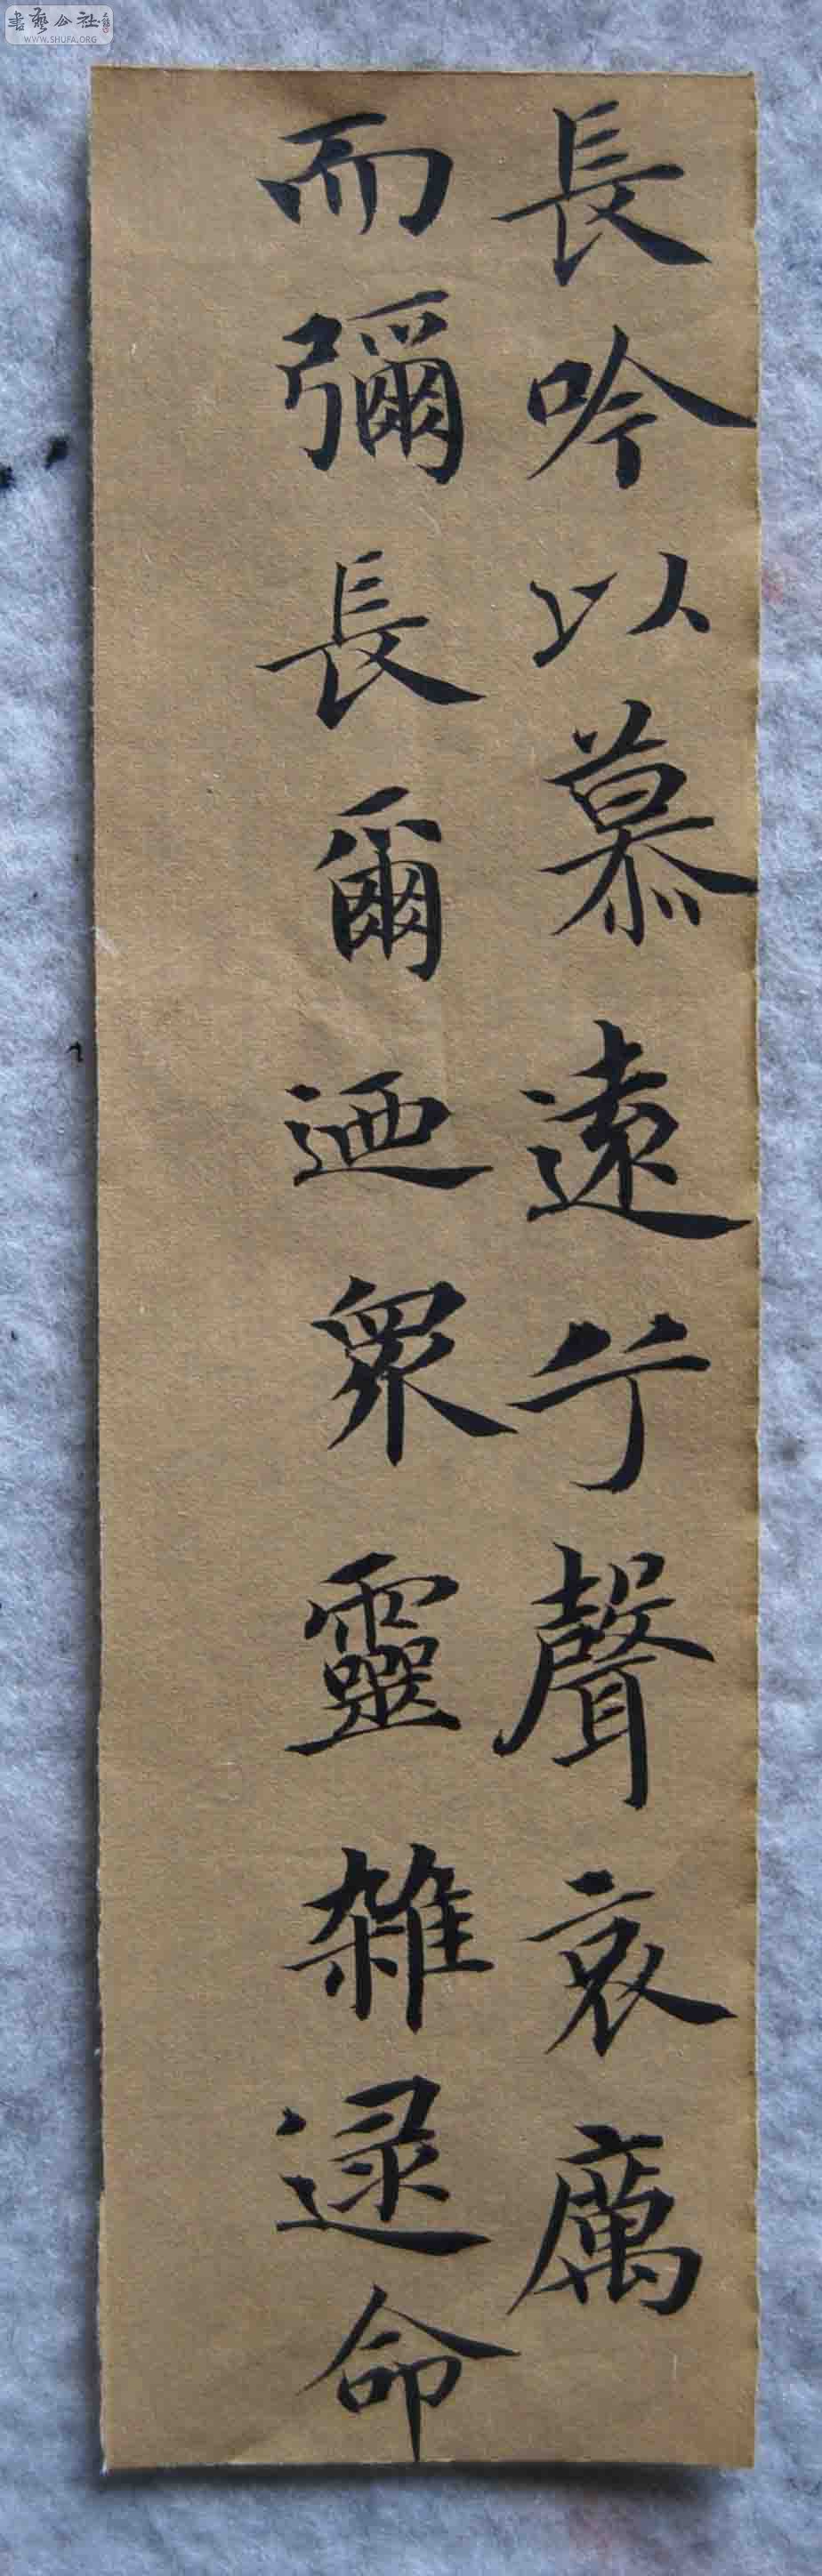 長吟以慕遠兮聲哀厲
而彌長爾迺眾靈雜遝命
書藝公社
WWW.SHUFA.ORG